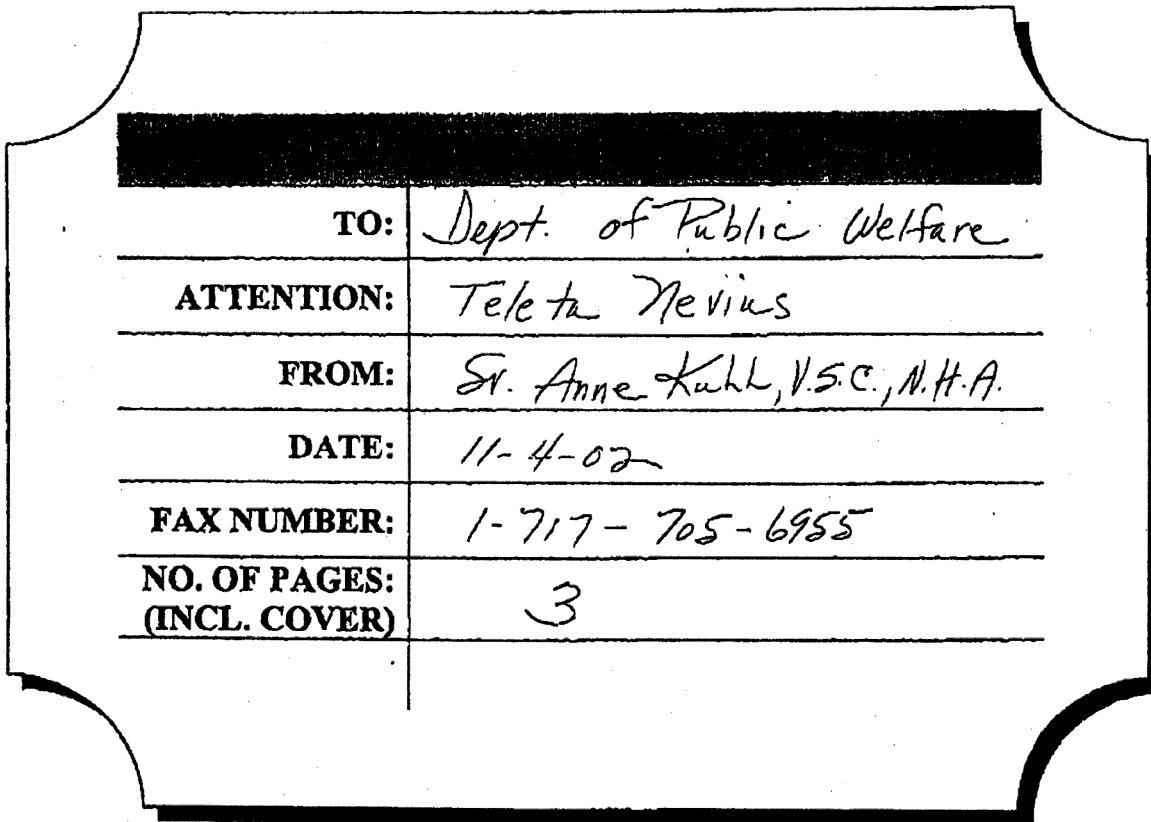 TO: Dept. of Public Welfare
ATTENTION: Teleta Nevius
FROM: Sr. Anne Kuhh, V.S.C., N.H.A.
DATE: 11-4-02
FAX NUMBER: 1-717-705-6955
NO. OF PAGES:
(INCL. COVER) 3